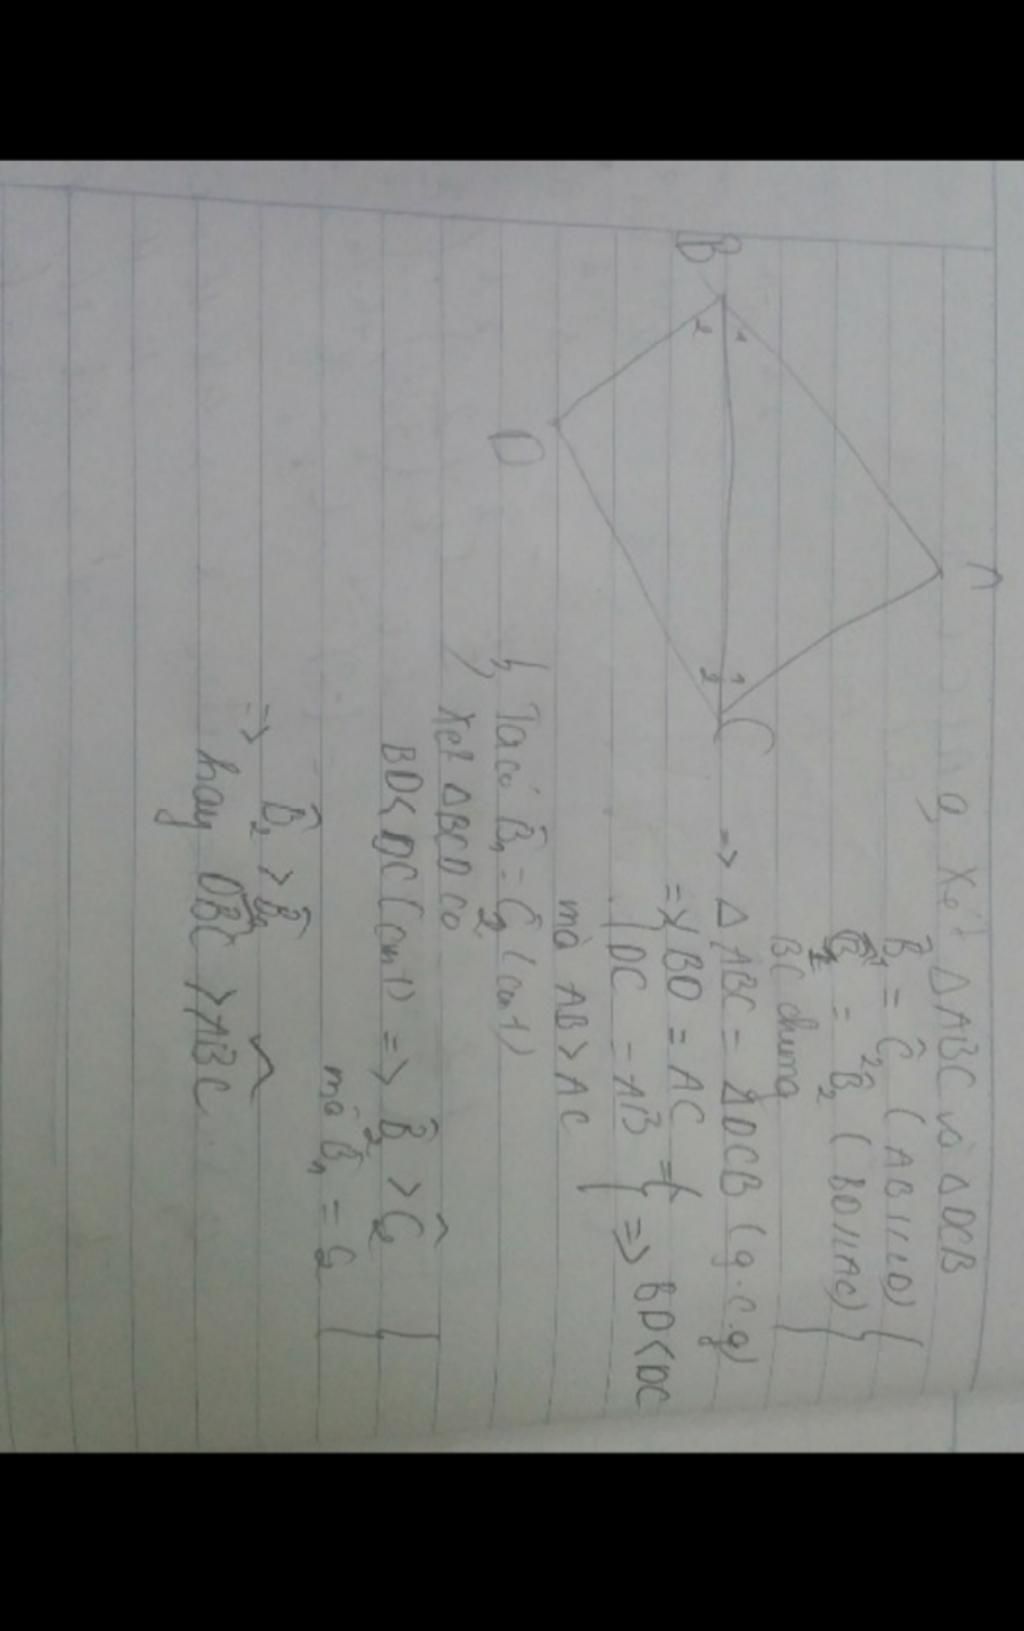 A
B
C
D
1
2
1
2
a, Xét Δ ABC và Δ DCB
B̂₁ = Ĉ₂ ( AB // CD)
Ĉ₁ = B̂₂ ( BD // AC)
BC chung
=> Δ ABC = Δ DCB (g.c.g)
=> BD = AC
DC = AB
mà AB > AC
=> BD < DC
b, Ta có B̂₁ = Ĉ₂ (cmt)
Xét Δ BCD có
BD < DC (cmt) => B̂₂ > Ĉ₂
mà B̂₁ = Ĉ₂
=> B̂₂ > B̂₁
hay DBC > ABC